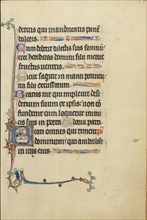 deritis qui manducatis pane
doloris
Cum dederit dilectis suis somnu
ecce hereditas domini filii mer
ces fructus uentris
Sicut sagitte in manu potentis
ita filii excussorum
Beatus uir qui impleuit desi
derium suum ex ipsis non con
fundetur cum loquetur inimi
cis suis in porta
Beati omnes qui timent
dominum qui ambulant
in uiis eius